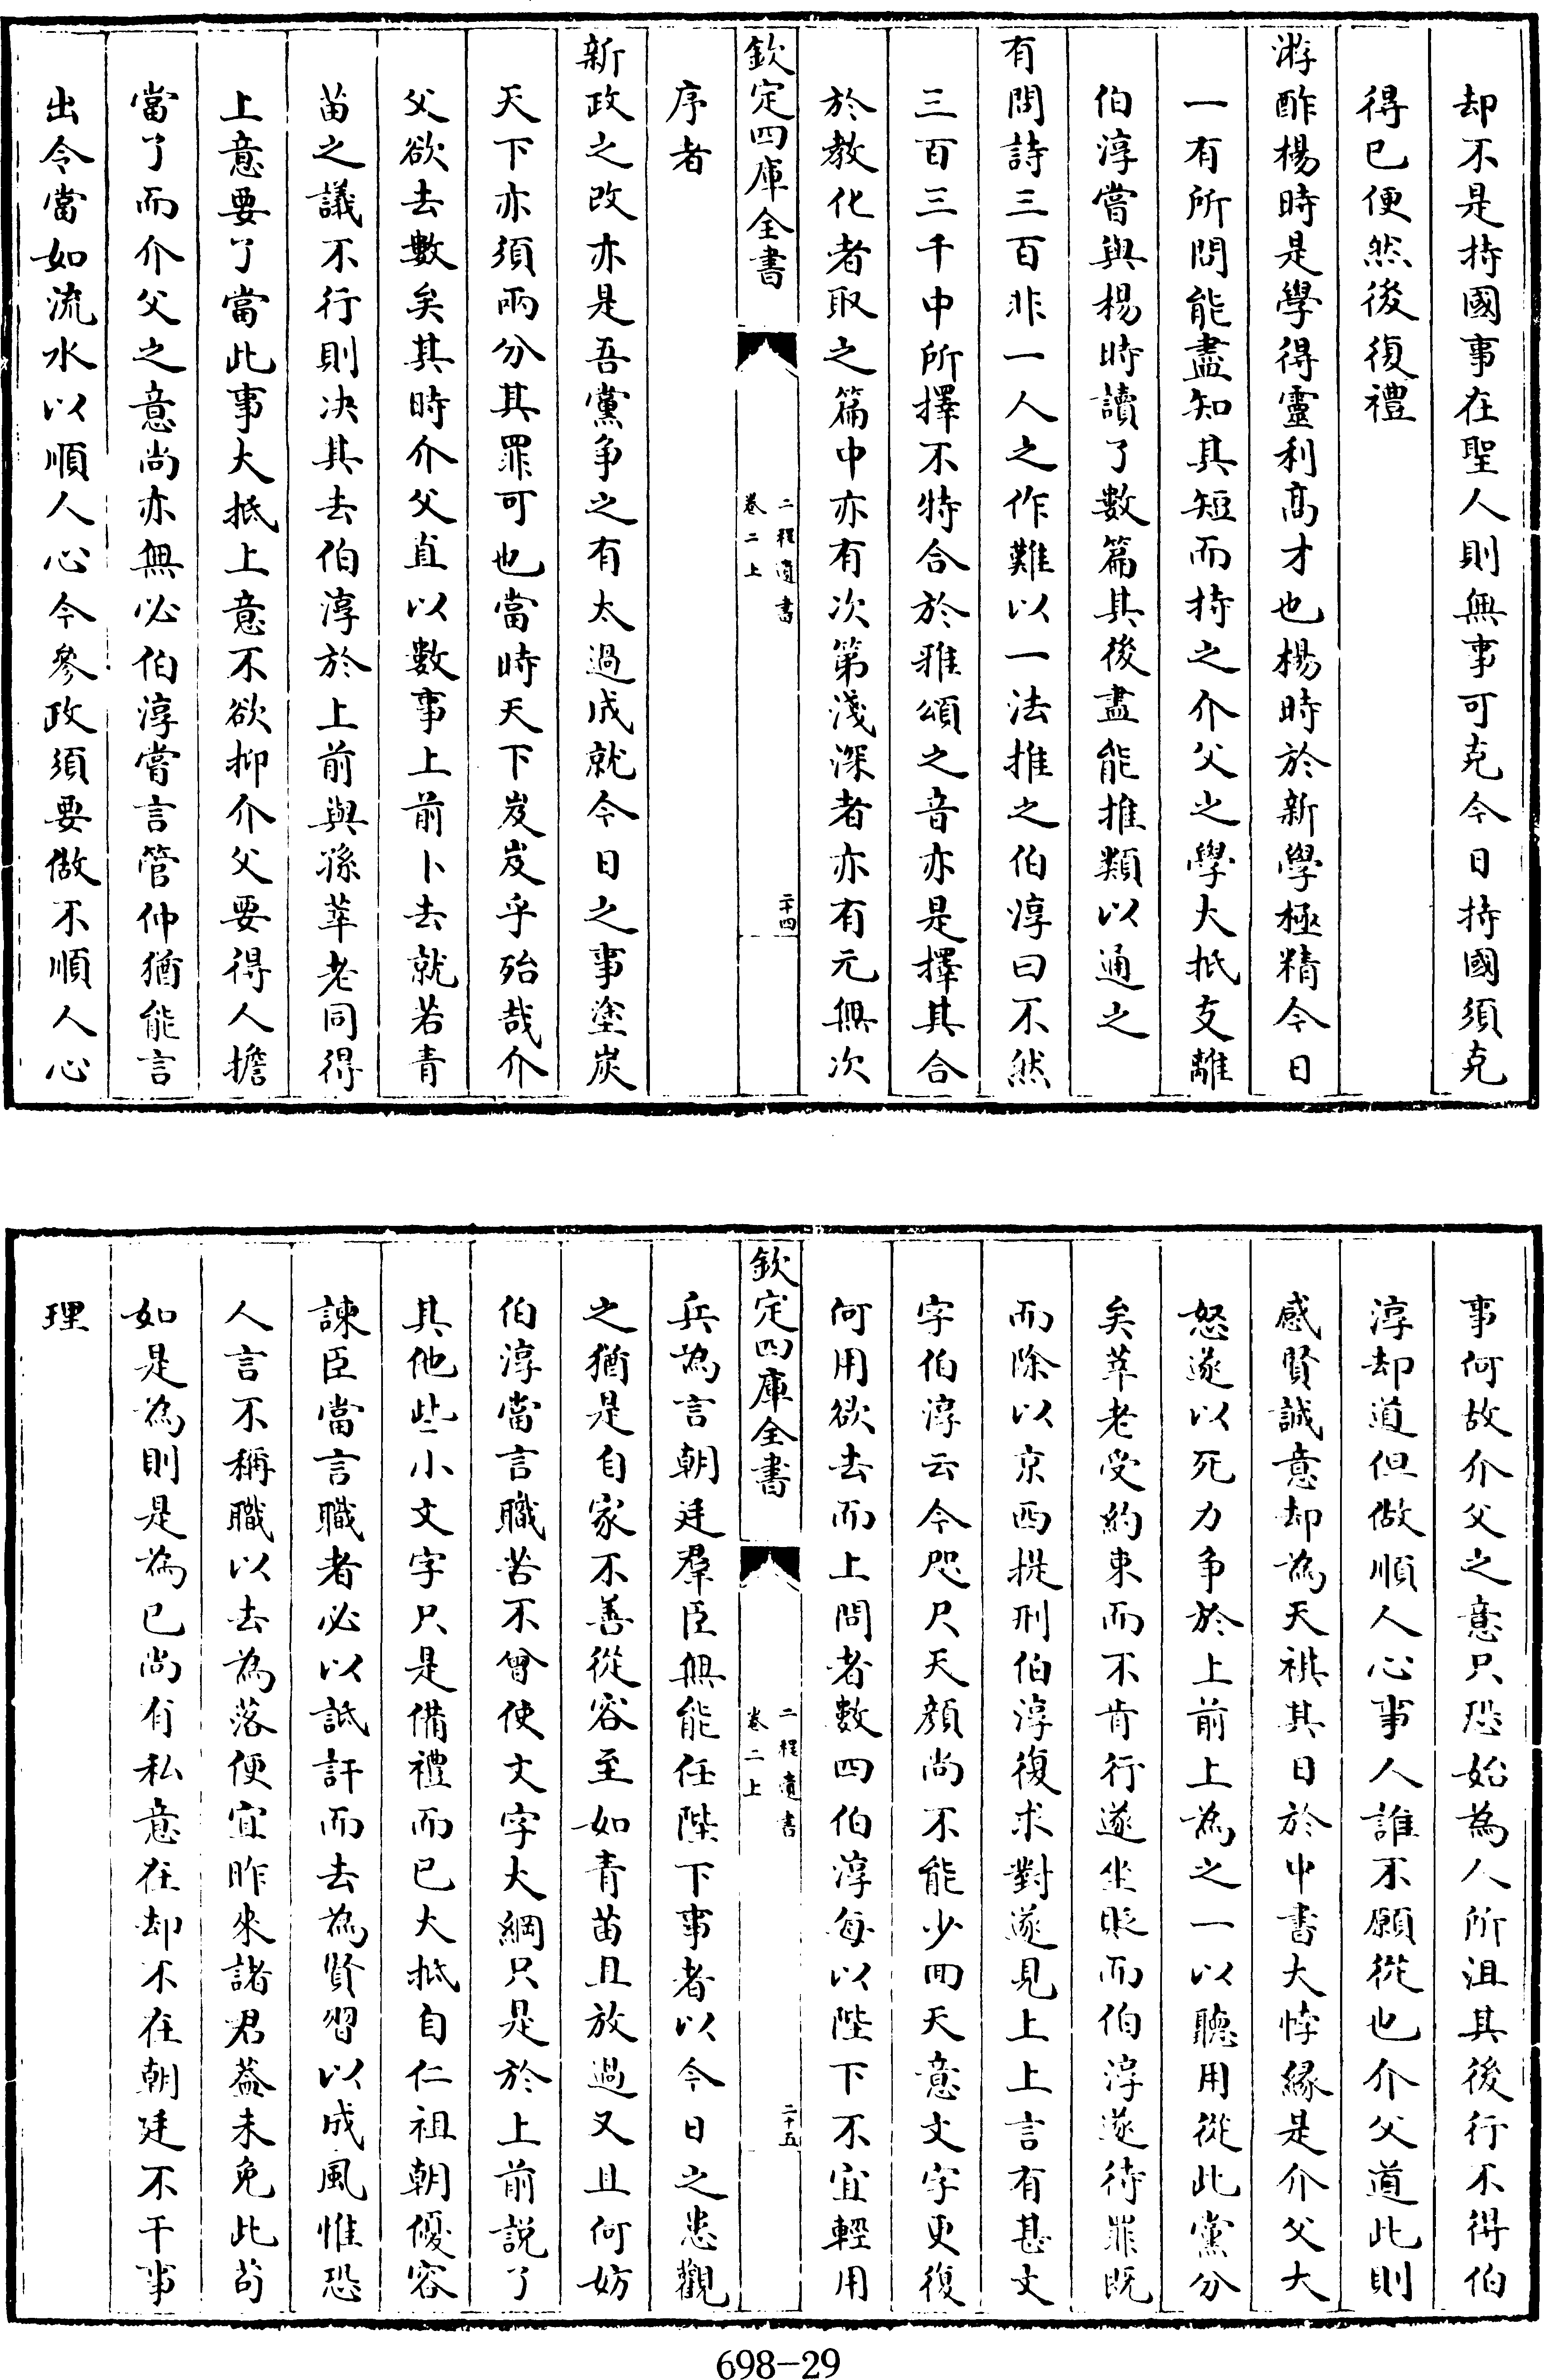 却不是持國事在聖人則無事可克今日持國須克
得已便然後復禮
游酢楊時是學得靈利高才也楊時於新學極精今日
一有所問能盡知其短而持之介父之學大抵支離
伯淳嘗與楊時讀了數篇其後盡能推類以通之
有問詩三百非一人之作難以一法推之伯淳曰不然
三百三千中所擇不特合於雅頌之音亦是擇其合
於教化者取之篇中亦有次第淺深者亦有元無次
欽定四庫全書
二程遺書
卷二上
二十四
序者
新政之改亦是吾黨争之有太過成就今日之事塗炭
天下亦須兩分其罪可也當時天下岌岌乎殆哉介
父欲去數矣其時介父直以數事上前卜去就若青
苗之議不行則决其去伯淳於上前與孫莘老同得
上意要了當此事大抵上意不欲抑介父要得人擔
當了而介父之意尚亦無必伯淳嘗言管仲猶能言
出令當如流水以順人心今參政須要做不順人心
事何故介父之意只恐始為人所沮其後行不得伯
淳却道但做順人心事人誰不願從也介父道此則
感賢誠意却為天祺其日於中書大悖緣是介父大
怒遂以死力争於上前上為之一以聽用從此黨分
矣莘老受約束而不肯行遂坐貶而伯淳遂待罪既
而除以京西提刑伯淳復求對遂見上上言有甚文
字伯淳云今咫尺天顏尚不能少回天意文字更復
何用欲去而上問者數四伯淳每以陛下不宜輕用
欽定四庫全書
二程遺書
卷二上
二十五
兵為言朝廷羣臣無能任陛下事者以今日之患觀
之猶是自家不善從容至如青苗且放過又且何妨
伯淳當言職苦不曾使文字大綱只是於上前説了
其他些小文字只是備禮而已大抵自仁祖朝優容
諫臣當言職者必以詆訐而去為賢習以成風惟恐
人言不稱職以去為落便宜昨來諸君葢未免此茍
如是為則是為已尚有私意在却不在朝廷不干事
理
698-29